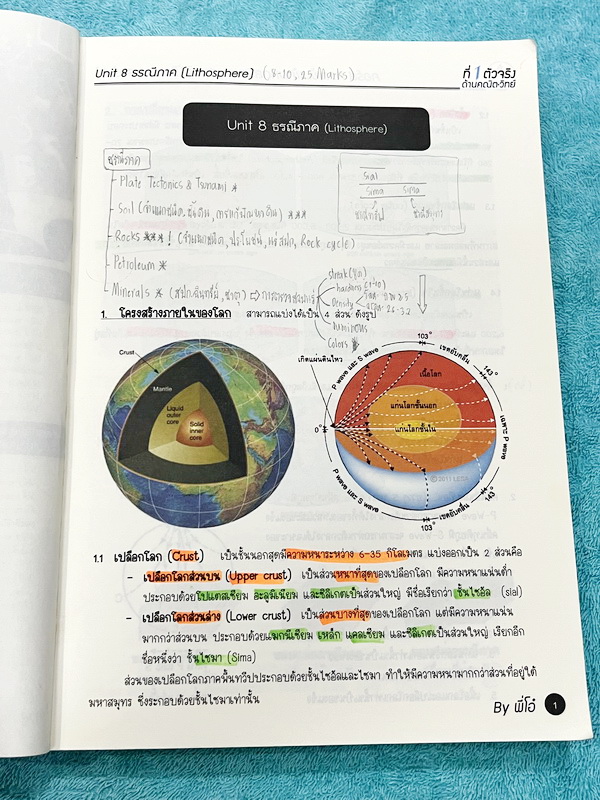 Unit 8 ธรณีภาค (Lithosphere) (8-10, 25 Marks)
ที่ 1 ตัวจริง
ด้านคณิต-วิทย์
Unit 8 ธรณีภาค (Lithosphere)
ธรณีภาค
Plate Tectonics & Tsunami *
Sial
Sima Sima
Rocks ***!
Rock cycle)
Petroleum *
Minerals *
streak
hardness
Density
luminous
Colors
1. โครงสร้างภายในของโลก สามารถแบ่งได้เป็น 4 ส่วน ดังรูป
Crust
Mantle
Liquid
outer
core
Solid
inner
core
เกิดแผ่นดินไหว
0°
P wave และ S wave
103°
เขตอับคลื่น
143°
เฉพาะ P wave
เนื้อโลก
แก่นโลกชั้นนอก
แก่นโลกชั้นใน
© 2011 LESA
143°
เขตอับคลื่น
103°
P wave และ S wave
1.1 เปลือกโลก (Crust) เป็นชั้นนอกสุดมีความหนาระหว่าง 6-35 กิโลเมตร แบ่งออกเป็น 2 ส่วนคือ
- เปลือกโลกส่วนบน (Upper crust) เป็นส่วนหนาที่สุดของเปลือกโลก มีความหนาแน่นต่ำ
ประกอบด้วยโปแตสเซียม อะลูมิเนียม และซิลิเกตเป็นส่วนใหญ่ มีชื่อเรียกว่า ชั้นไซอัล (sial)
- เปลือกโลกส่วนล่าง (Lower crust) เป็นส่วนบางที่สุดของเปลือกโลก แต่มีความหนาแน่น
มากกว่าส่วนบน ประกอบด้วยแมกนีเซียม เหล็ก แคลเซียม และซิลิเกตเป็นส่วนใหญ่ เรียกอีก
ชื่อหนึ่งว่า ชั้นไซมา (Sima)
ส่วนของเปลือกโลกภาคพื้นทวีปประกอบด้วยชั้นไซอัลและไซมา ทำให้มีความหนามากกว่าส่วนที่อยู่ใต้
มหาสมุทร ซึ่งระกอบด้วยชั้นไซมาเท่านั้น
By พี่โอ๋ 1